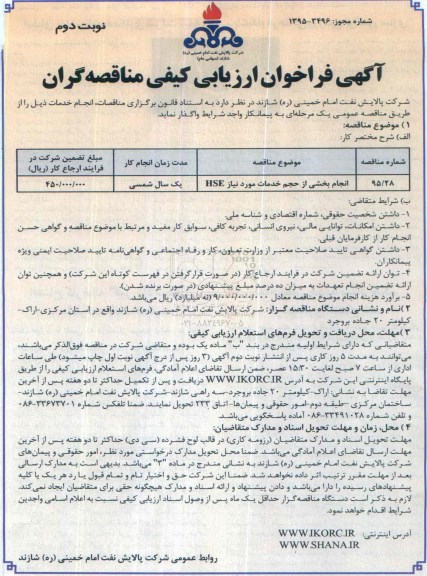 شماره مجوز: ۳۴۹۶-۱۳۹۵
نوبت دوم
شرکت پالایش نفت امام خمینی (ره)
شازند (سهامی عام)
آگهی فراخوان ارزیابی کیفی مناقصه‌گران
شرکت پالایش نفت امام خمینی (ره) شازند در نظر دارد به استناد قانون برگزاری مناقصات، انجام خدمات ذیل را از
طریق مناقصه عمومی یک مرحله‌ای به پیمانکار واجد شرایط واگذار نماید.
۱) موضوع مناقصه:
الف) شرح مختصر کار:
شماره مناقصه موضوع مناقصه مدت زمان انجام کار مبلغ تضمین شرکت در فرایند ارجاع کار (ریال)
۹۵/۲۸ انجام بخشی از حجم خدمات مورد نیاز HSE یک سال شمسی ۴۵۰/۰۰۰/۰۰۰
ب) شرایط متقاضی:
۱- داشتن شخصیت حقوقی، شماره اقتصادی و شناسه ملی.
۲- داشتن امکانات، توانایی مالی، نیروی انسانی، تجربه کافی، سوابق کار مفید و مرتبط با موضوع مناقصه و گواهی حسن
انجام کار از کارفرمایان قبلی.
۳- داشتن گواهی تایید صلاحیت معتبر از وزارت تعاون، کار و رفاه اجتماعی و گواهی‌نامه تایید صلاحیت ایمنی ویژه
پیمانکاران.
۴- توان ارائه تضمین شرکت در فرایند ارجاع کار (در صورت قرار گرفتن در فهرست کوتاه این شرکت) و همچنین توان
ارائه تضمین انجام تعهدات به میزان ده درصد مبلغ پیشنهادی (در صورت برنده شدن).
۵- برآورد هزینه انجام موضوع مناقصه معادل ۹/۰۰۰/۰۰۰/۰۰۰ (نه میلیارد) ریال می‌باشد.
۲) نام و نشانی دستگاه مناقصه گزار: شرکت پالایش نفت امام خمینی (ره) شازند واقع در استان مرکزی-اراک-
کیلومتر ۲۰ جاده بروجرد
۳) مهلت، محل دریافت و تحویل فرم‌های استعلام ارزیابی کیفی:
متقاضیانی که دارای شرایط اولیه مندرج در بند "ب" ماده یک بوده و متقاضی شرکت در مناقصه فوق‌الذکر می‌باشند،
می‌توانند به مدت ۵ روز کاری پس از انتشار نوبت دوم آگهی (۳ روز پس از درج آگهی نوبت اول چاپ میشود) طی ساعات
اداری از ساعت ۷ صبح لغایت ۱۵:۳۰ عصر، ضمن ارسال تقاضای اعلام آمادگی، فرم‌های استعلام ارزیابی کیفی را از طریق
پایگاه اینترنتی این شرکت به آدرس WWW.IKORC.IR دریافت و پس از تکمیل حداکثر تا دو هفته پس از آخرین
مهلت تقاضا به نشانی: اراک-کیلومتر ۲۰ جاده بروجرد-سه راهی شازند-شرکت پالایش نفت امام خمینی (ره) شازند-
ساختمان مرکزی -طبقه دوم-امور حقوقی و پیمان‌ها- اتاق ۲۳۳ تحویل نمایند. ضمنا تلفکس شماره ۳۳۶۷۳۷۰۱-۰۸۶
و تلفن شماره ۳۳۴۹۱۰۲۸-۰۸۶ آماده پاسخگویی می‌باشد.
۴) محل، زمان و مهلت تحویل اسناد و مدارک متقاضیان:
مهلت تحویل اسناد و مدارک متقاضیان (رزومه کاری) در قالب لوح فشرده (سی دی) حداکثر تا دو هفته پس از آخرین
مهلت ارسال تقاضای اعلام آمادگی می‌باشد. ضمنا محل تحویل مدارک درخواستی مورد نظر، امور حقوقی و پیمان‌های
شرکت پالایش نفت امام خمینی (ره) شازند به نشانی مندرج در ماده "۳" می‌باشد. بدیهی است به مدارک ارسالی
بعد از مهلت مقرر ترتیب اثر داده نخواهد شد. ضمنا این شرکت حق و اختیار تام و تمام قبول یا رد هر یک یا کلیه
پیشنهادهای رسیده را دارا می‌باشد و دادن پیشنهاد و ارائه اسناد و مدارک هیچگونه حقی برای متقاضیان ایجاد نمی‌کند.
لازم به ذکر است دستگاه مناقصه‌گزار حداقل یک ماه پس از وصول اسناد ارزیابی کیفی نسبت به اعلام اسامی واجدین
شرایط اقدام خواهد نمود.
آدرس اینترنتی: WWW.IKORC.IR
WWW.SHANA.IR
روابط عمومی شرکت پالایش نفت امام خمینی (ره) شازند